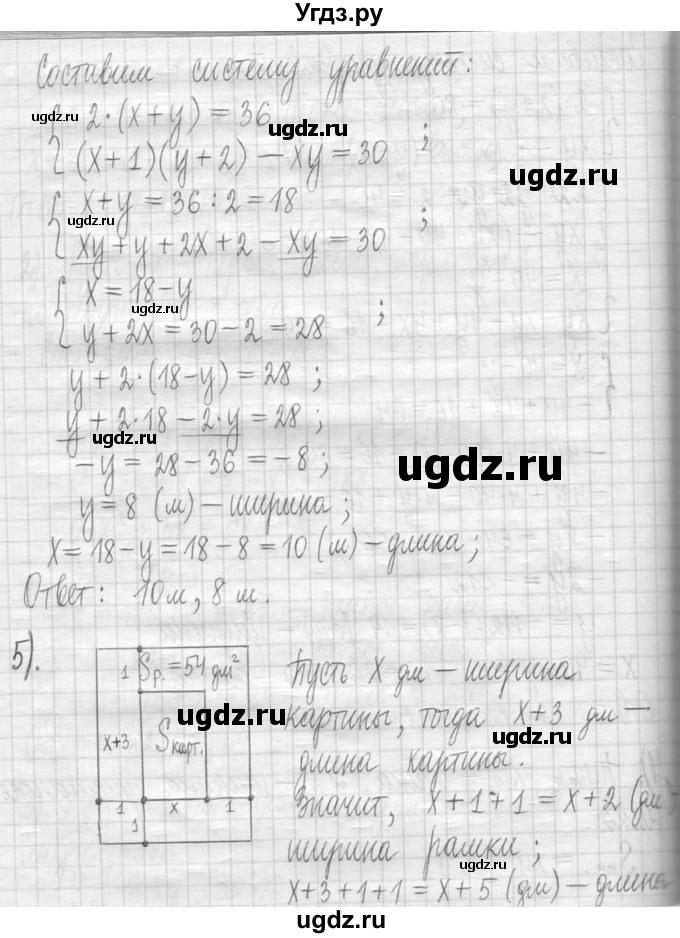 Угдз.ру
Составим систему уравнений:
2·(x+y) = 36
(x+1)(y+2) – xy = 30 ;
x+y = 36:2 = 18
xy + y + 2x + 2 – xy = 30 ;
x = 18 – y
y + 2x = 30 – 2 = 28 ;
y + 2·(18–y) = 28 ;
y + 2·18 – 2·y = 28 ;
–y = 28 – 36 = –8 ;
y = 8 (м) – ширина ;
x = 18 – y = 18 – 8 = 10 (м) – длина ;
Ответ: 10м, 8 м.
5).
1 Sр. = 54 дм²
x+3 Sкарт.
1 x 1
1
Пусть x дм – ширина
картины, тогда x+3 дм –
длина картины.
Значит, x+1+1 = x+2 (дм
ширина рамки ;
x+3+1+1 = x+5 (дм) – длина
ugdz.ru
ugdz.ru
ugdz.ru
ugdz.ru
ugdz.ru
ugdz.ru
ugdz.ru
ugdz.ru
ugdz.ru
ugdz.ru
ugdz.ru
ugdz.ru
ugdz.ru